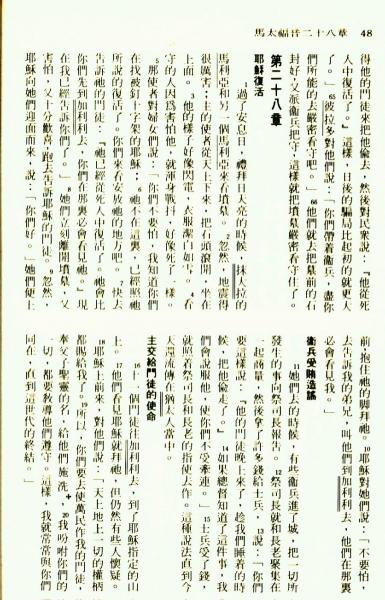 馬太福音二十八章 48
得他的門徒來把他偷去，然後對民衆說：『他從死
人中復活了。』這樣，日後的騙局比起初的就更大
了。」65彼拉多對他們說：「你們帶着衞兵，盡你
們所能的去嚴密看守吧。」66他們就去把墓前的石
封好，又派衞兵把守，這樣就把墳墓嚴密看守住了。
第二十八章
耶穌復活
1過了安息日，禮拜日天亮的時候，抹大拉的
馬利亞和另一個馬利亞來看墳墓。2忽然，地震得
很厲害；主的使者從天上下來，把石頭滾開，坐在
上面。3他的樣子好像閃電，衣服潔白如雪。4看
守的人因爲害怕他，就渾身戰抖，好像死了一樣。
5那使者對婦女們說：「你們不要怕，我知道你們
在找被釘十字架的耶穌；6祂不在這裏，已經照祂
所說的復活了。你們來看安放祂的地方吧。7快去
告訴祂的門徒：『祂已經從死人中復活了。祂會比
你們先到加利利去，你們在那裏必會看見祂。』現
在我已經告訴你們了。」8她們立刻離開墳墓，又
害怕，又十分歡喜，跑去告訴耶穌的門徒。9忽然，
耶穌向她們迎面而來，說：「你們好。」她們便上
前，抱住祂的脚拜祂。10耶穌對她們說：「不要怕，
去告訴我的弟兄，叫他們到加利利去，他們在那裏
必會看見我。」
衞兵受賄造謠
11她們去的時候，有些衞兵進了城，把一切所
發生的事向祭司長報告。12祭司長就和長老聚集在
一起商量，然後拿了許多錢給士兵，13說：「你們
要這樣說：『他的門徒晚上來了，趁我們睡着的時
候，把他偷走了。』14如果總督知道了這件事，我
們會說服他，使你們不受牽連。」15士兵受了錢，
就照着祭司長和長老的指使去作。這種說法直到今
天還流傳在猶太人當中。
主交給門徒的使命
16十一個門徒往加利利去，到了耶穌指定的山
上。17他們看見耶穌就拜祂，但仍然有些人懷疑。
18耶穌上前來，對他們說：「天上地上一切的權柄
都賜給我了。19所以，你們要去使萬民作我的門徒，
奉父子聖靈的名，給他們施洗，20我吩咐你們的
一切，都要教導他們遵守。這樣，我就常常與你們
同在，直到這世代的終結。」